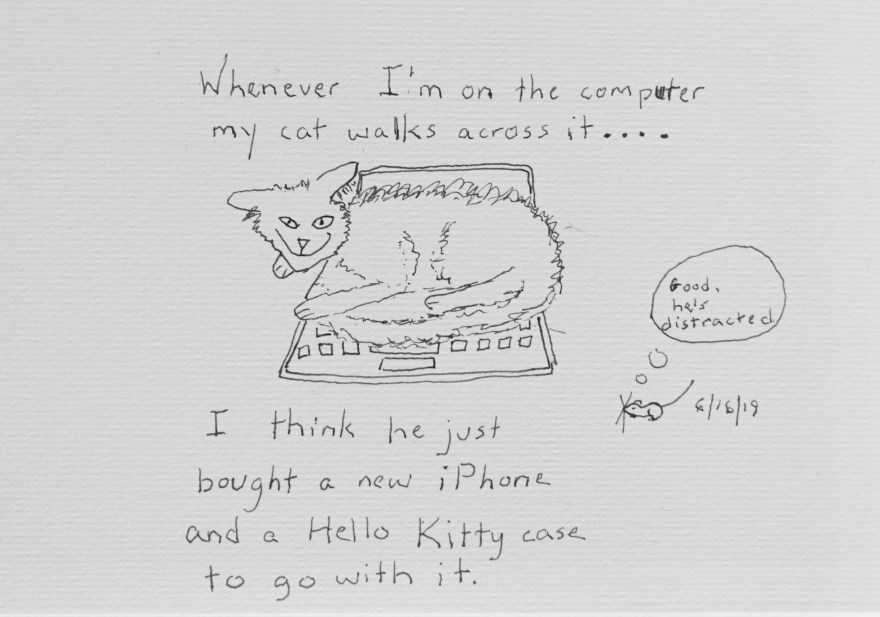 Whenever I'm on the computer
my cat walks across it....
Good,
he's
distracted
6/16/19
I think he just
bought a new iPhone
and a Hello Kitty case
to go with it.